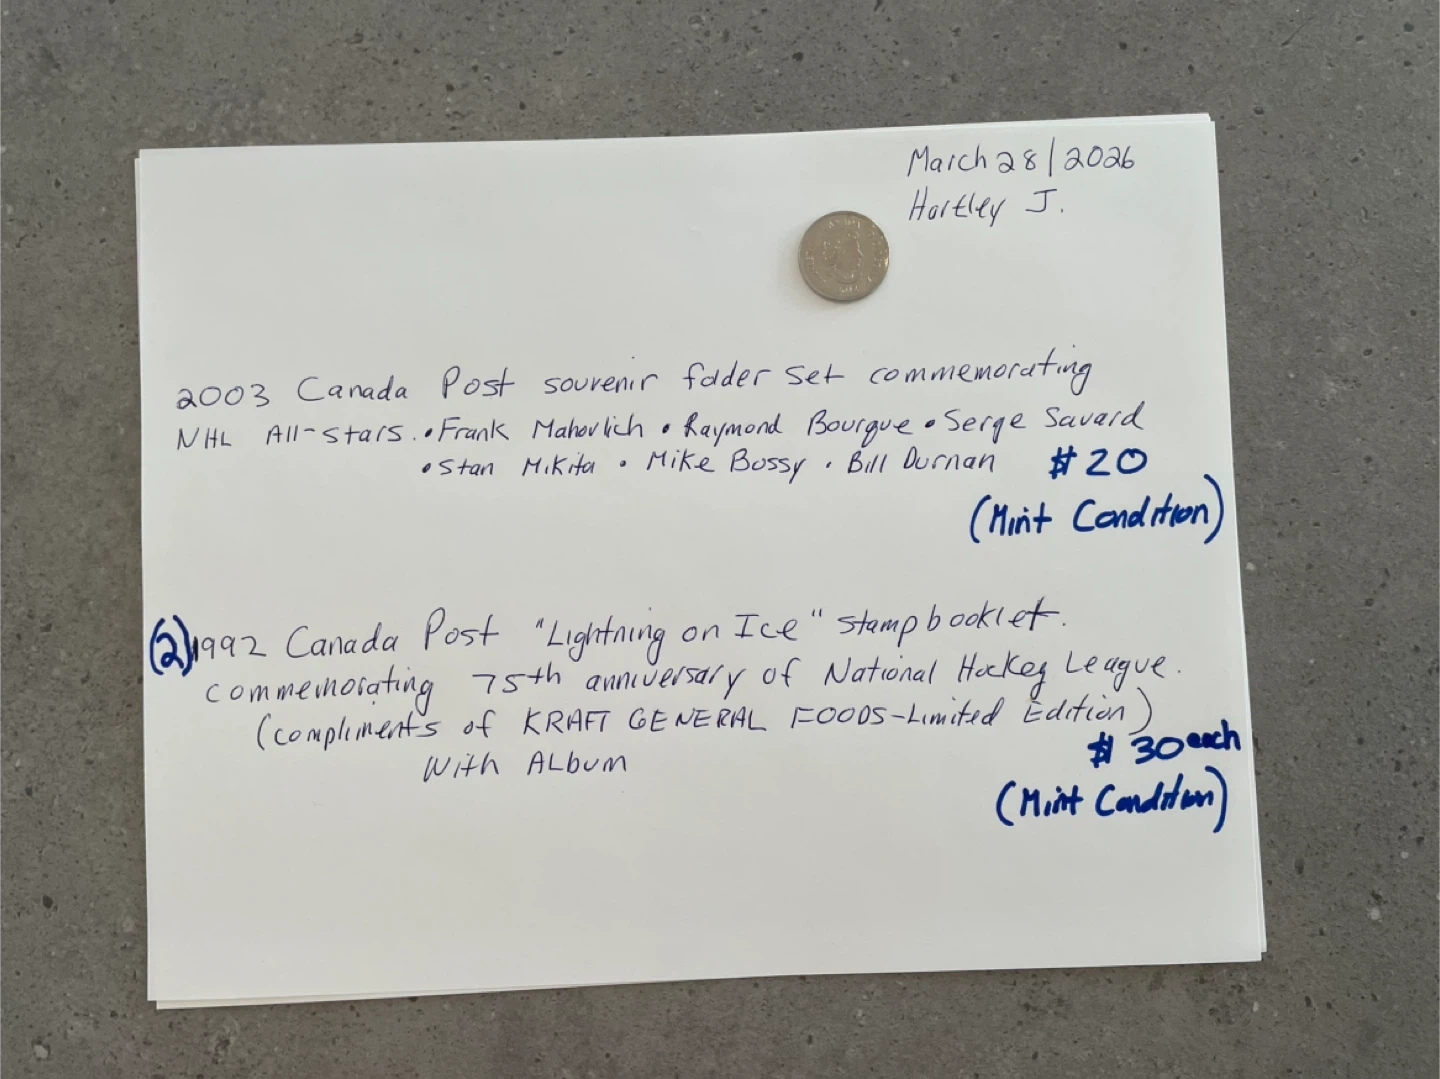 March 28/2026
Hartley J.
2003 Canada Post souvenir folder set commemorating
NHL All-Stars. • Frank Mahovlich • Raymond Bourque • Serge Savard
• Stan Mikita • Mike Bossy • Bill Durnan $20
(Mint Condition)
(2) 1992 Canada Post "Lightning on Ice" stamp booklet.
commemorating 75th anniversary of National Hockey League.
(compliments of KRAFT GENERAL FOODS-Limited Edition)
With ALbum $30 each
(Mint Condition)